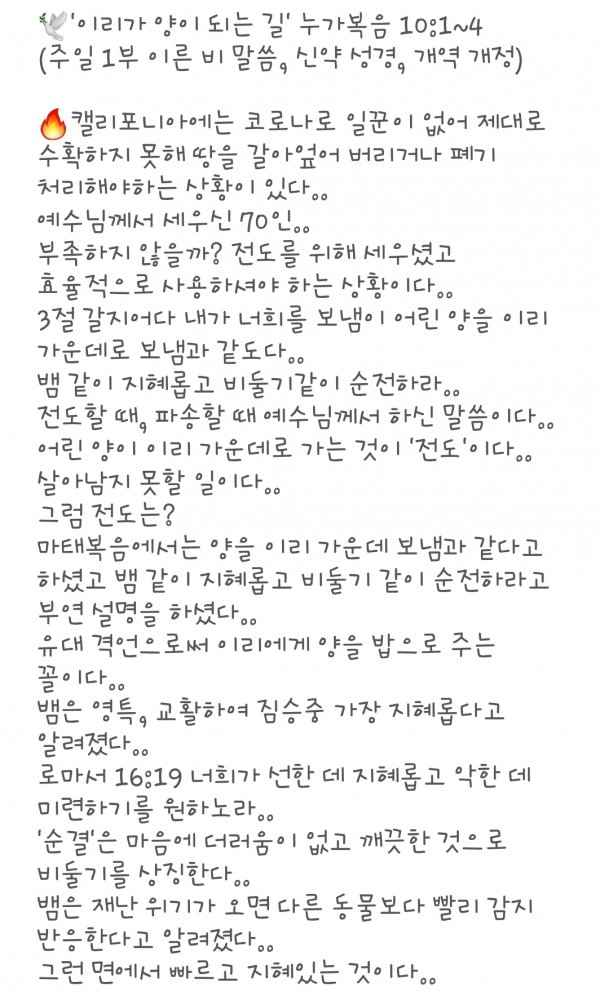 🕊'이리가 양이 되는 길' 누가복음 10:1~4
(주일 1부 이른 비 말씀, 신약 성경, 개역 개정)
🔥캘리포니아에는 코로나로 일꾼이 없어 제대로
수확하지 못해 땅을 갈아엎어 버리거나 폐기
처리해야하는 상황이 있다..
예수님께서 세우신 70인..
부족하지 않을까? 전도를 위해 세우셨고
효율적으로 사용하셔야 하는 상황이다..
3절 갈지어다 내가 너희를 보냄이 어린 양을 이리
가운데로 보냄과 같도다..
뱀 같이 지혜롭고 비둘기같이 순전하라..
전도할 때, 파송할 때 예수님께서 하신 말씀이다..
어린 양이 이리 가운데로 가는 것이 '전도'이다..
살아남지 못할 일이다..
그럼 전도는?
마태복음에서는 양을 이리 가운데 보냄과 같다고
하셨고 뱀 같이 지혜롭고 비둘기 같이 순전하라고
부연 설명을 하셨다..
유대 격언으로써 이리에게 양을 밥으로 주는
꼴이다..
뱀은 영특, 교활하여 짐승중 가장 지혜롭다고
알려졌다..
로마서 16:19 너희가 선한 데 지혜롭고 악한 데
미련하기를 원하노라..
'순결'은 마음에 더러움이 없고 깨끗한 것으로
비둘기를 상징한다..
뱀은 재난 위기가 오면 다른 동물보다 빨리 감지
반응한다고 알려졌다..
그런 면에서 빠르고 지혜있는 것이다..